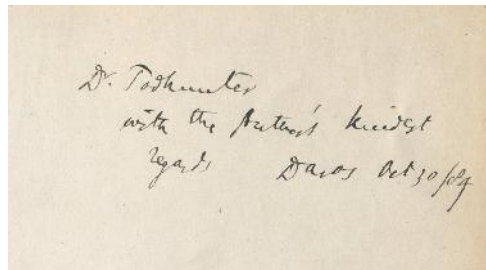 Dr. Todhunter
with the Author's kindest
regards Davos Oct 30/84